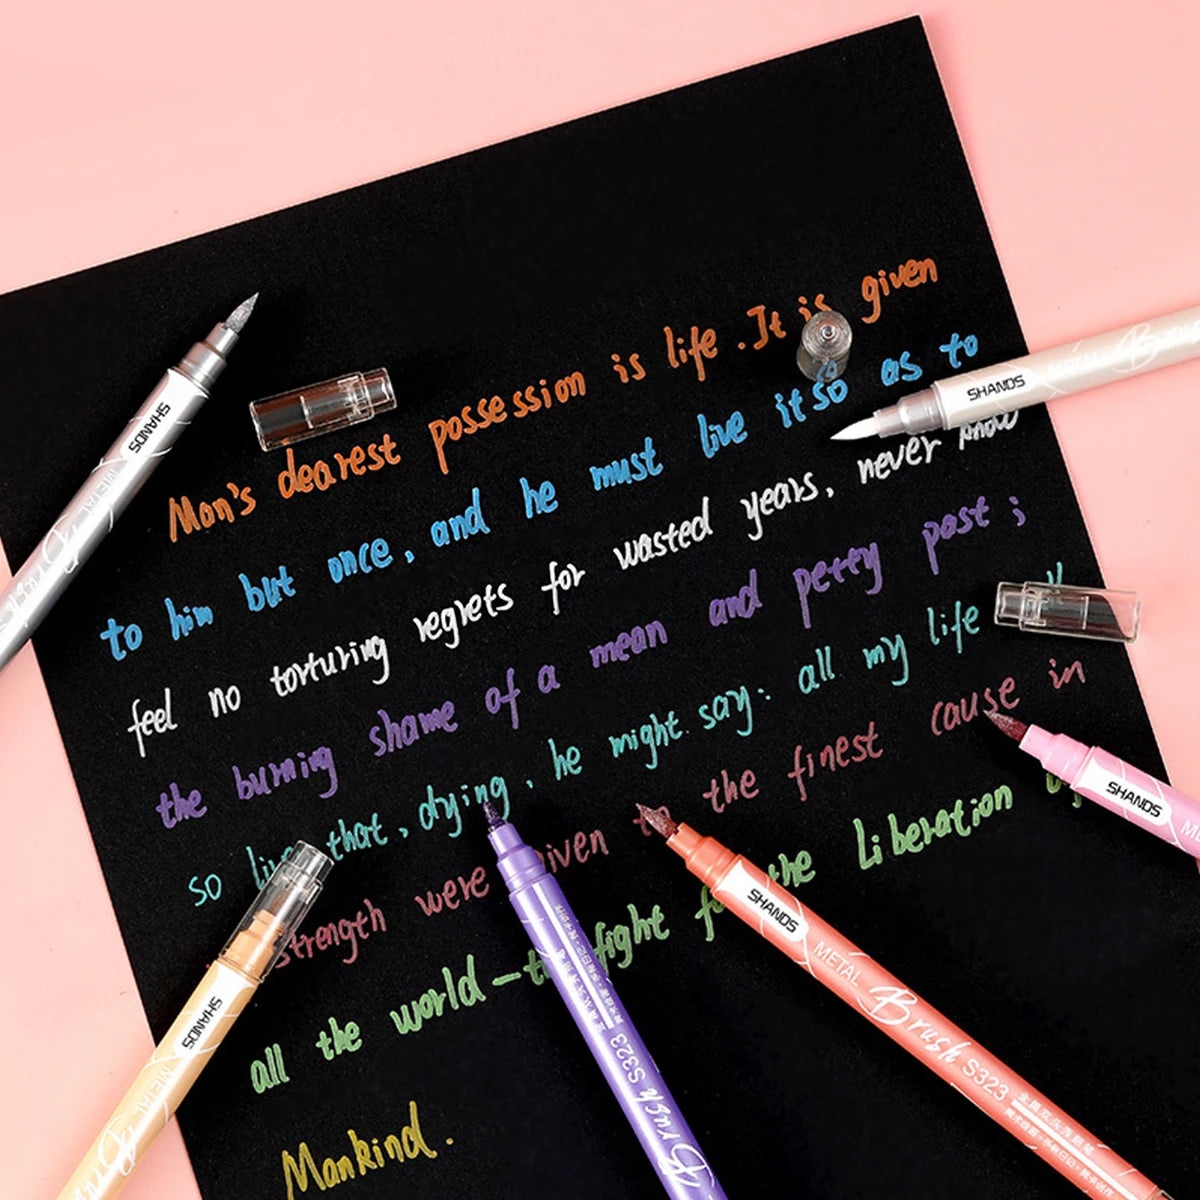 Man's dearest possession is life. It is given
to him but once, and he must live it so as to
feel no torturing regrets for wasted years, never know
the burning shame of a mean and petty past;
so live that, dying, he might say: all my life
strength were given to the finest cause in
all the world — the fight for the Liberation of
Mankind.
SHANDS METAL Brush
SHANDS METAL B
SHANDS
SHANDS METAL Brush S323
Brush S323
SHANDS METAL Bru